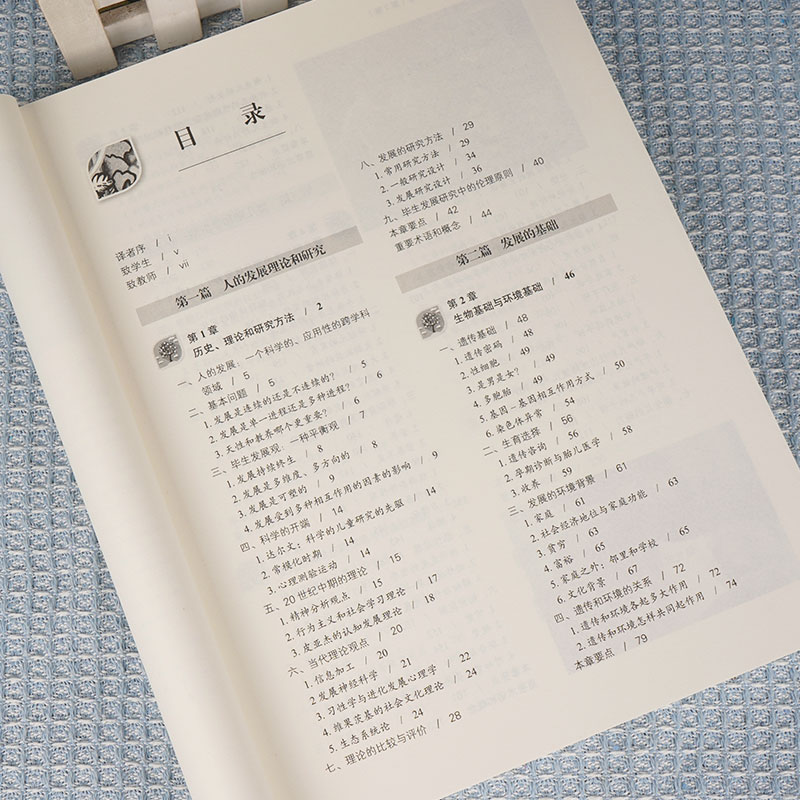 目 录
译者序 / i
致学生 / v
致教师 / vii
第一篇 人的发展理论和研究
第1章
历史、理论和研究方法 / 2
一、人的发展：一个科学的、应用性的跨学科
领域 / 5
二、基本问题 / 5
1. 发展是连续的还是不连续的？ / 5
2. 发展是单一进程还是多种进程？ / 6
3. 天性和教养哪个更重要？ / 6
三、毕生发展观：一种平衡观 / 7
1. 发展持续终生 / 8
2. 发展是多维度、多方向的 / 8
3. 发展是可塑的 / 9
4. 发展受到多种相互作用的因素的影响 / 9
四、科学的开端 / 14
1. 达尔文：科学的儿童研究的先驱 / 14
2. 常模化时期 / 14
3. 心理测验运动 / 14
五、20世纪中期的理论 / 15
1. 精神分析观点 / 15
2. 行为主义和社会学习理论 / 17
3. 皮亚杰的认知发展理论 / 18
六、当代理论观点 / 20
1. 信息加工 / 20
2 发展神经科学 / 21
3. 习性学与进化发展心理学 / 22
4. 维果茨基的社会文化理论 / 24
5. 生态系统论 / 24
七、理论的比较与评价 / 28
八、发展的研究方法 / 29
1. 常用研究方法 / 29
2. 一般研究设计 / 34
3. 发展研究设计 / 36
九、毕生发展研究中的伦理原则 / 40
本章要点 / 42
重要术语和概念 / 44
第二篇 发展的基础
第2章
生物基础与环境基础 / 46
一、遗传基础 / 48
1. 遗传密码 / 48
2. 性细胞 / 49
3. 是男是女？ / 49
4. 多胞胎 / 49
5. 基因－基因相互作用方式 / 50
6. 染色体异常 / 54
二、生育选择 / 56
1. 遗传咨询 / 56
2. 孕期诊断与胎儿医学 / 58
3. 收养 / 59
三、发展的环境背景 / 61
1. 家庭 / 61
2. 社会经济地位与家庭功能 / 63
3. 贫穷 / 63
4. 富裕 / 65
5. 家庭之外：邻里和学校 / 65
6. 文化背景 / 67
四、遗传和环境的关系 / 72
1. 遗传和环境各起多大作用 / 72
2. 遗传和环境怎样共同起作用 / 74
本章要点 / 79